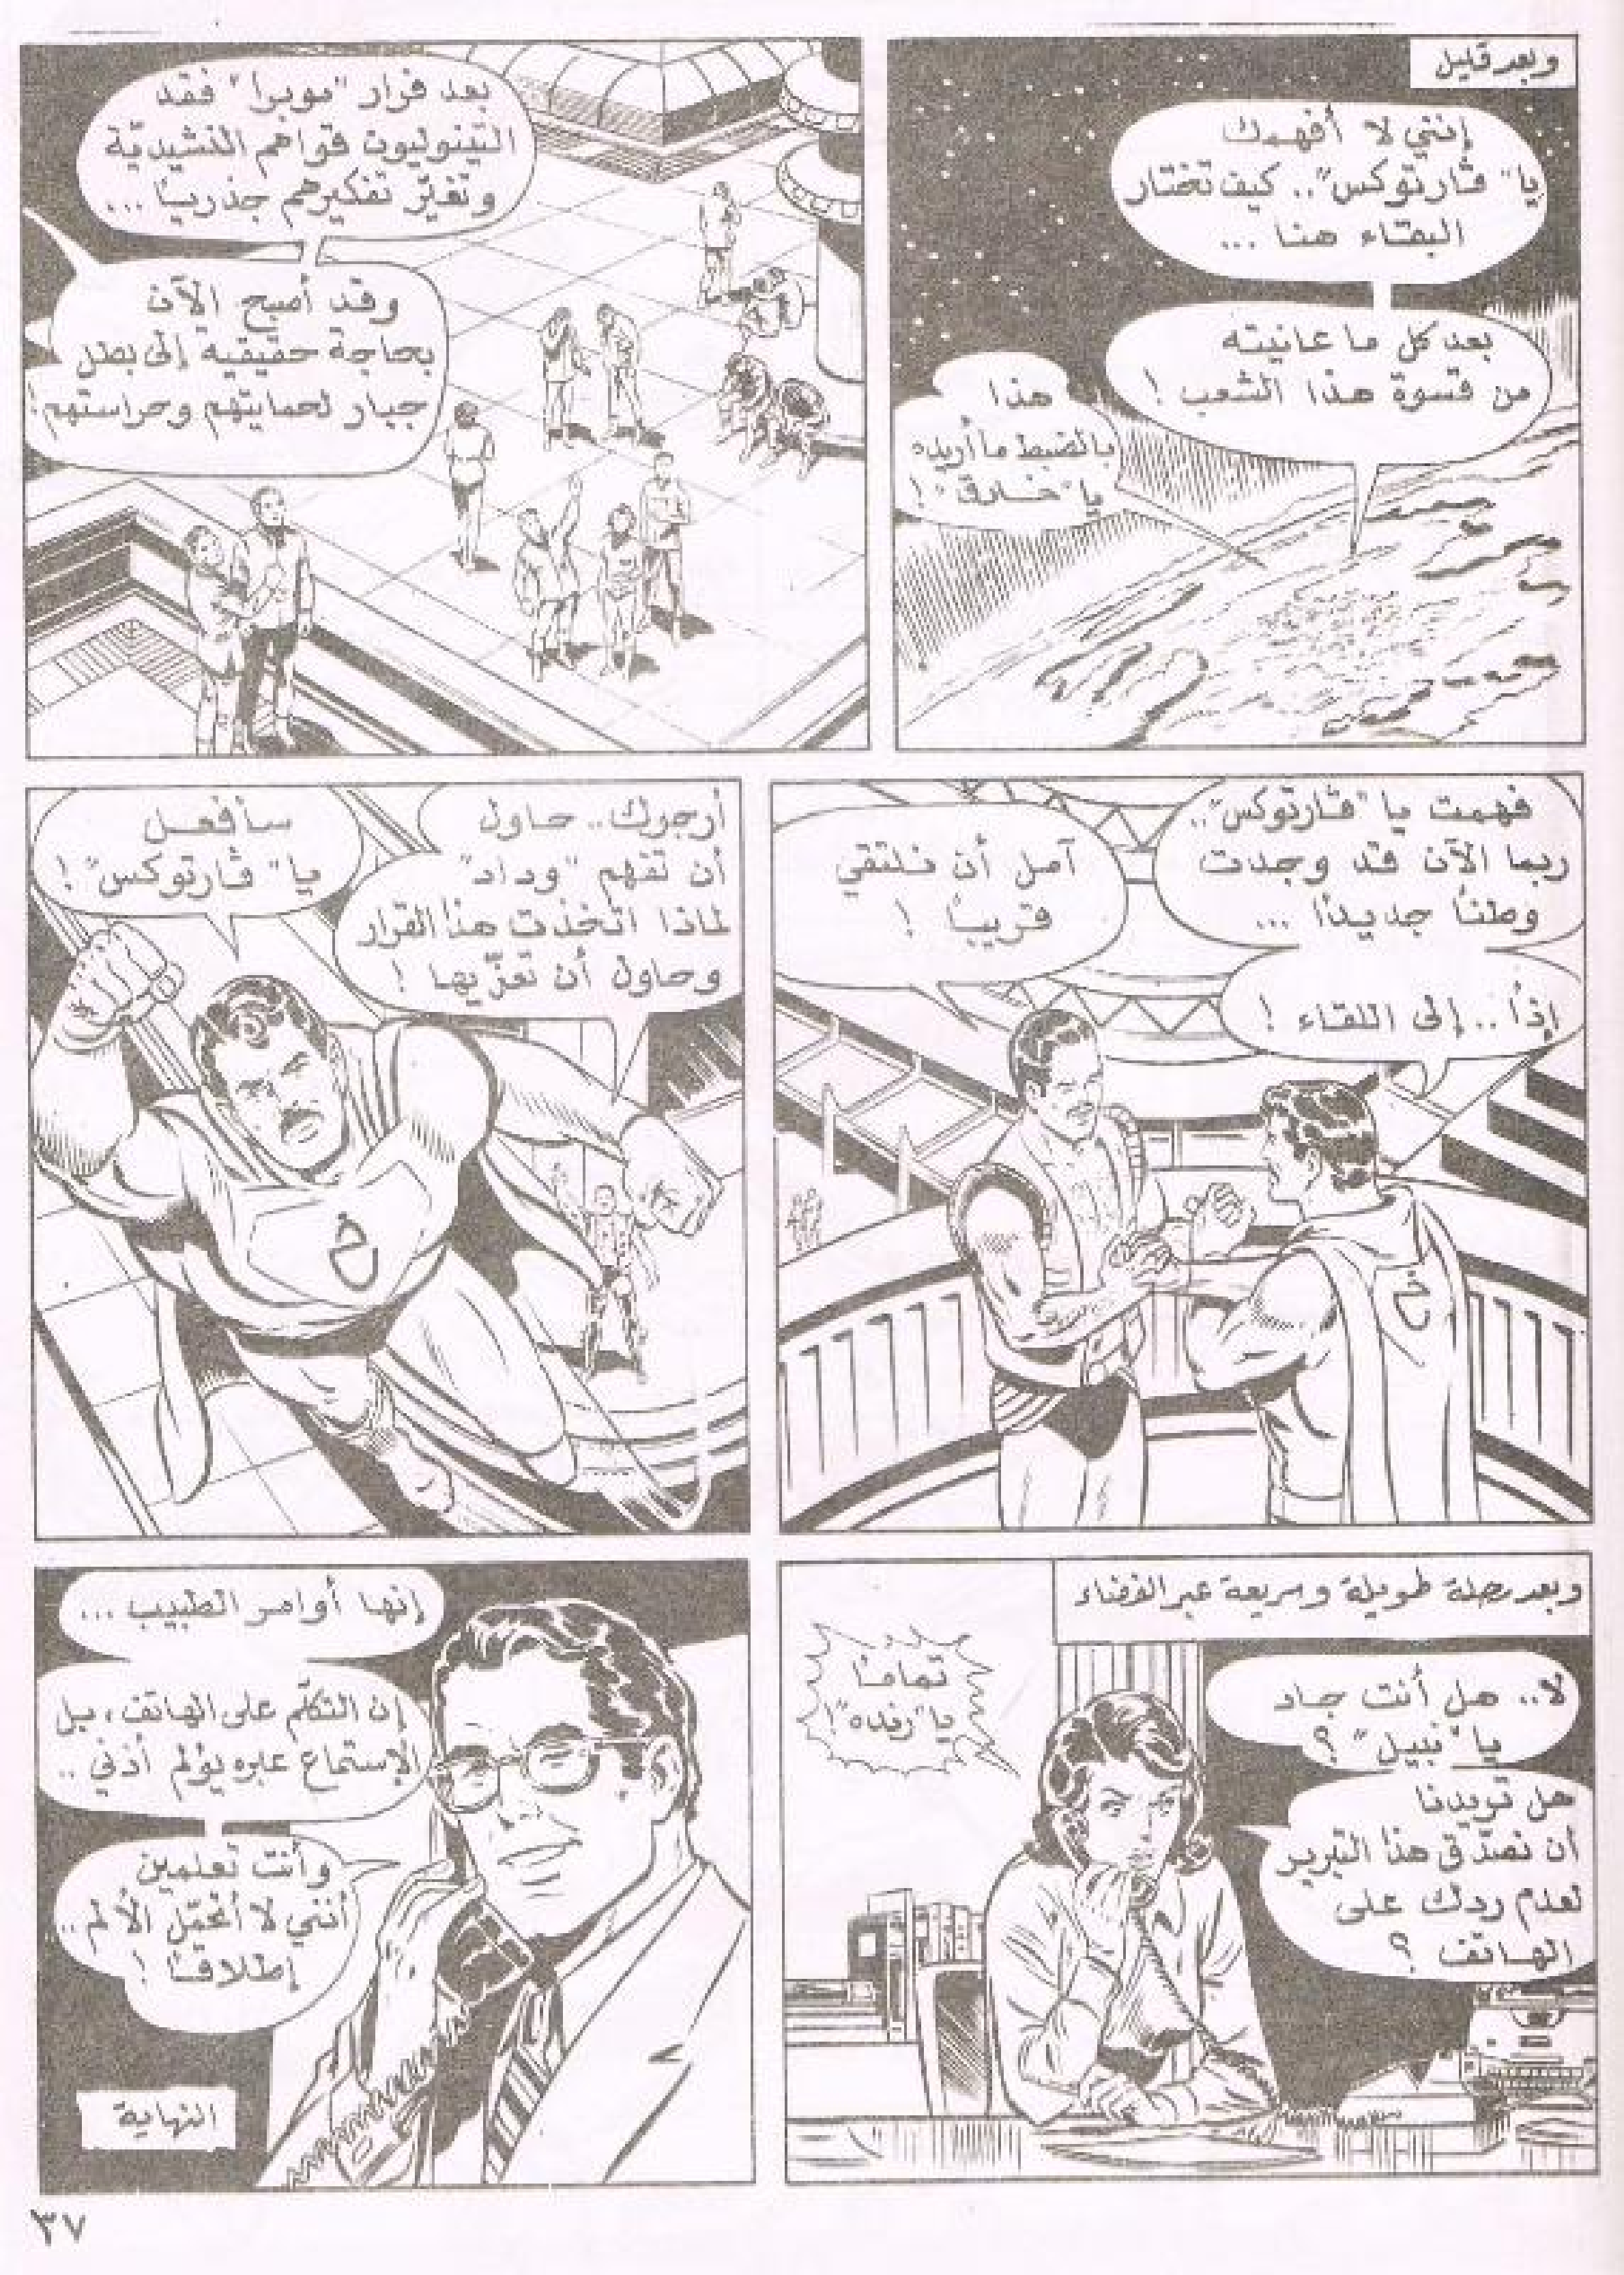 وبعد قليل
إنني لا أفهمك
يا "ڤارتوكس".. كيف تختار
البقاء هنا ...
بعد كل ما عانيته
من قسوة هذا الشعب !
هذا
بالضبط ما أريده
يا "خارق" !
بعد فرار "موبرا" فقد
التينوليون قواهم النشيديّة
وتغيّر تفكيرهم جذرياً ...
وقد أصبح الآن
بحاجة حقيقية إلى بطل
جبار لحمايتهم وحراستهم !
فهمت يا "ڤارتوكس"..
ربما الآن قد وجدت
وطناً جديداً ...
إذاً .. إلى اللقاء !
آمل أن نلتقي
قريباً !
أرجوك.. حاول
أن تفهم "وداد"
لماذا اتخذت هذا القرار
وحاول أن تعزّيها !
سأفعل
يا "ڤارتوكس" !
خ
خ
وبعد رحلة طويلة وسريعة عبر الفضاء
لا.. هل أنت جاد
يا "نبيل" ؟
هل تريدنا
أن نصدّق هذا التبرير
لعدم ردك على
الهاتف ؟
تماماً
يا "رنده" !
إنها أوامر الطبيب ...
إن التكلّم على الهاتف، بل
الإستماع عبره يؤلم أذني ..
وأنت تعلمين
أنني لا أتحمّل الألم ..
إطلاقاً !
النهاية
٣٧